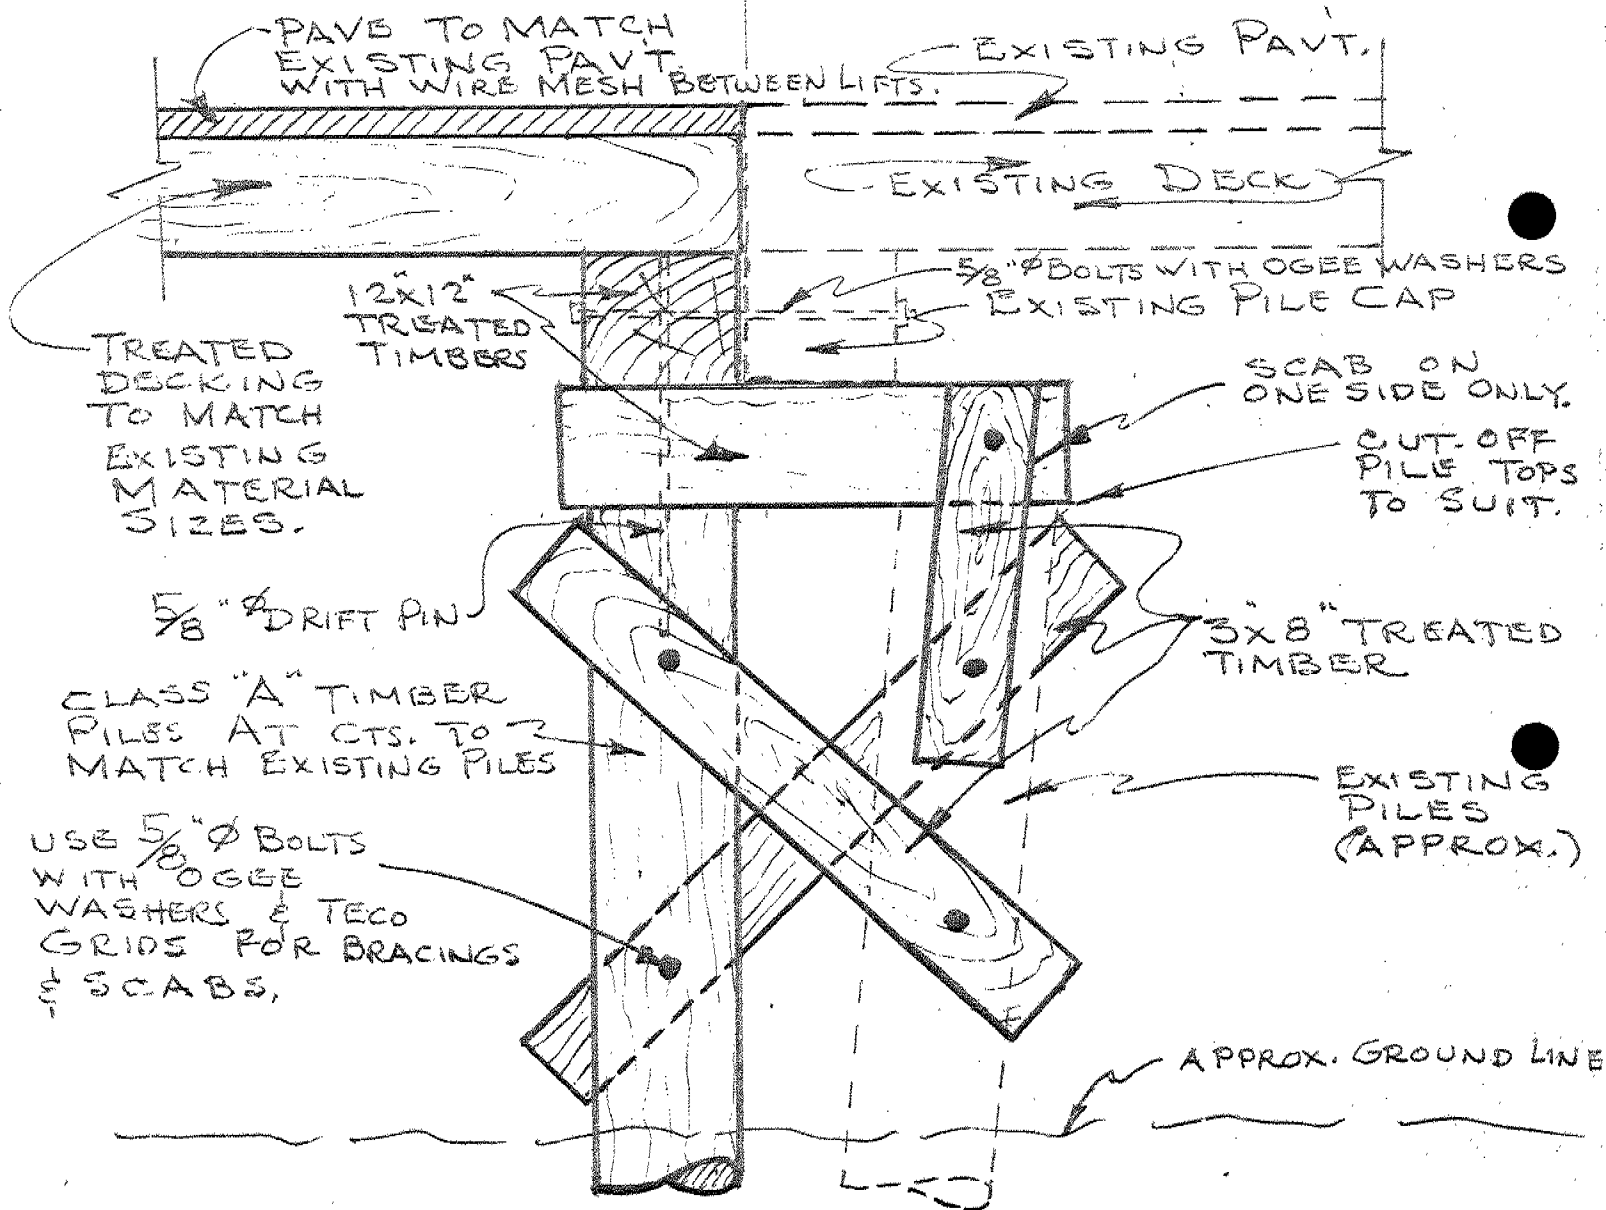 PAVE TO MATCH
EXISTING PAV'T.
WITH WIRE MESH BETWEEN LIFTS.
EXISTING PAV'T.
EXISTING DECK
5/8" Ø BOLTS WITH OGEE WASHERS
EXISTING PILE CAP
12"X12"
TREATED
TIMBERS
TREATED
DECKING
TO MATCH
EXISTING
MATERIAL
SIZES.
SCAB ON
ONE SIDE ONLY.
CUT-OFF
PILE TOPS
TO SUIT.
5/8" Ø DRIFT PIN
3"X8" TREATED
TIMBER
CLASS "A" TIMBER
PILES AT CTS. TO
MATCH EXISTING PILES
EXISTING
PILES
(APPROX.)
USE 5/8" Ø BOLTS
WITH OGEE
WASHERS & TECO
GRIDS FOR BRACINGS
& SCABS.
APPROX. GROUND LINE